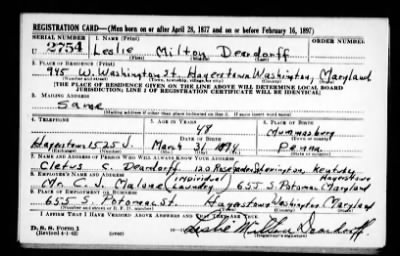 REGISTRATION CARD—(Men born on or after April 28, 1877 and on or before February 16, 1897)
SERIAL NUMBER 1. NAME (Print) ORDER NUMBER
U 2754 Leslie Milton Deardorff
(First) (Middle) (Last)
2. PLACE OF RESIDENCE (Print)
945 W. Washington St. Hagerstown Washington, Maryland
(Number and street) (Town, township, village, or city) (County) (State)
[THE PLACE OF RESIDENCE GIVEN ON THE LINE ABOVE WILL DETERMINE LOCAL BOARD
JURISDICTION; LINE 2 OF REGISTRATION CERTIFICATE WILL BE IDENTICAL]
3. MAILING ADDRESS
Same
(Mailing address if other than place indicated on line 2. If same insert word same)
4. TELEPHONE 5. AGE IN YEARS 6. PLACE OF BIRTH
48
DATE OF BIRTH
Hagerstown 1525 J. March 31 1894 Penna.
(Exchange) (Number) (Mo.) (Day) (Yr.) (State or country)
7. NAME AND ADDRESS OF PERSON WHO WILL ALWAYS KNOW YOUR ADDRESS
Cletus Deardorff 120
8. EMPLOYER'S NAME AND ADDRESS (individual) Hagerstown
Mr. C. J. Malone (Laundry) 655 S. Potomac Maryland
9. PLACE OF EMPLOYMENT OR BUSINESS
655 S. Potomac St. Hagerstown Washington Maryland
(Number and street or R. F. D. number) (Town) (County) (State)
I AFFIRM THAT I HAVE VERIFIED ABOVE ANSWERS AND THAT THEY ARE TRUE.
D. S. S. Form 1
(Revised 4-1-42) (over) Leslie Milton Deardorff.
(Registrant's signature)